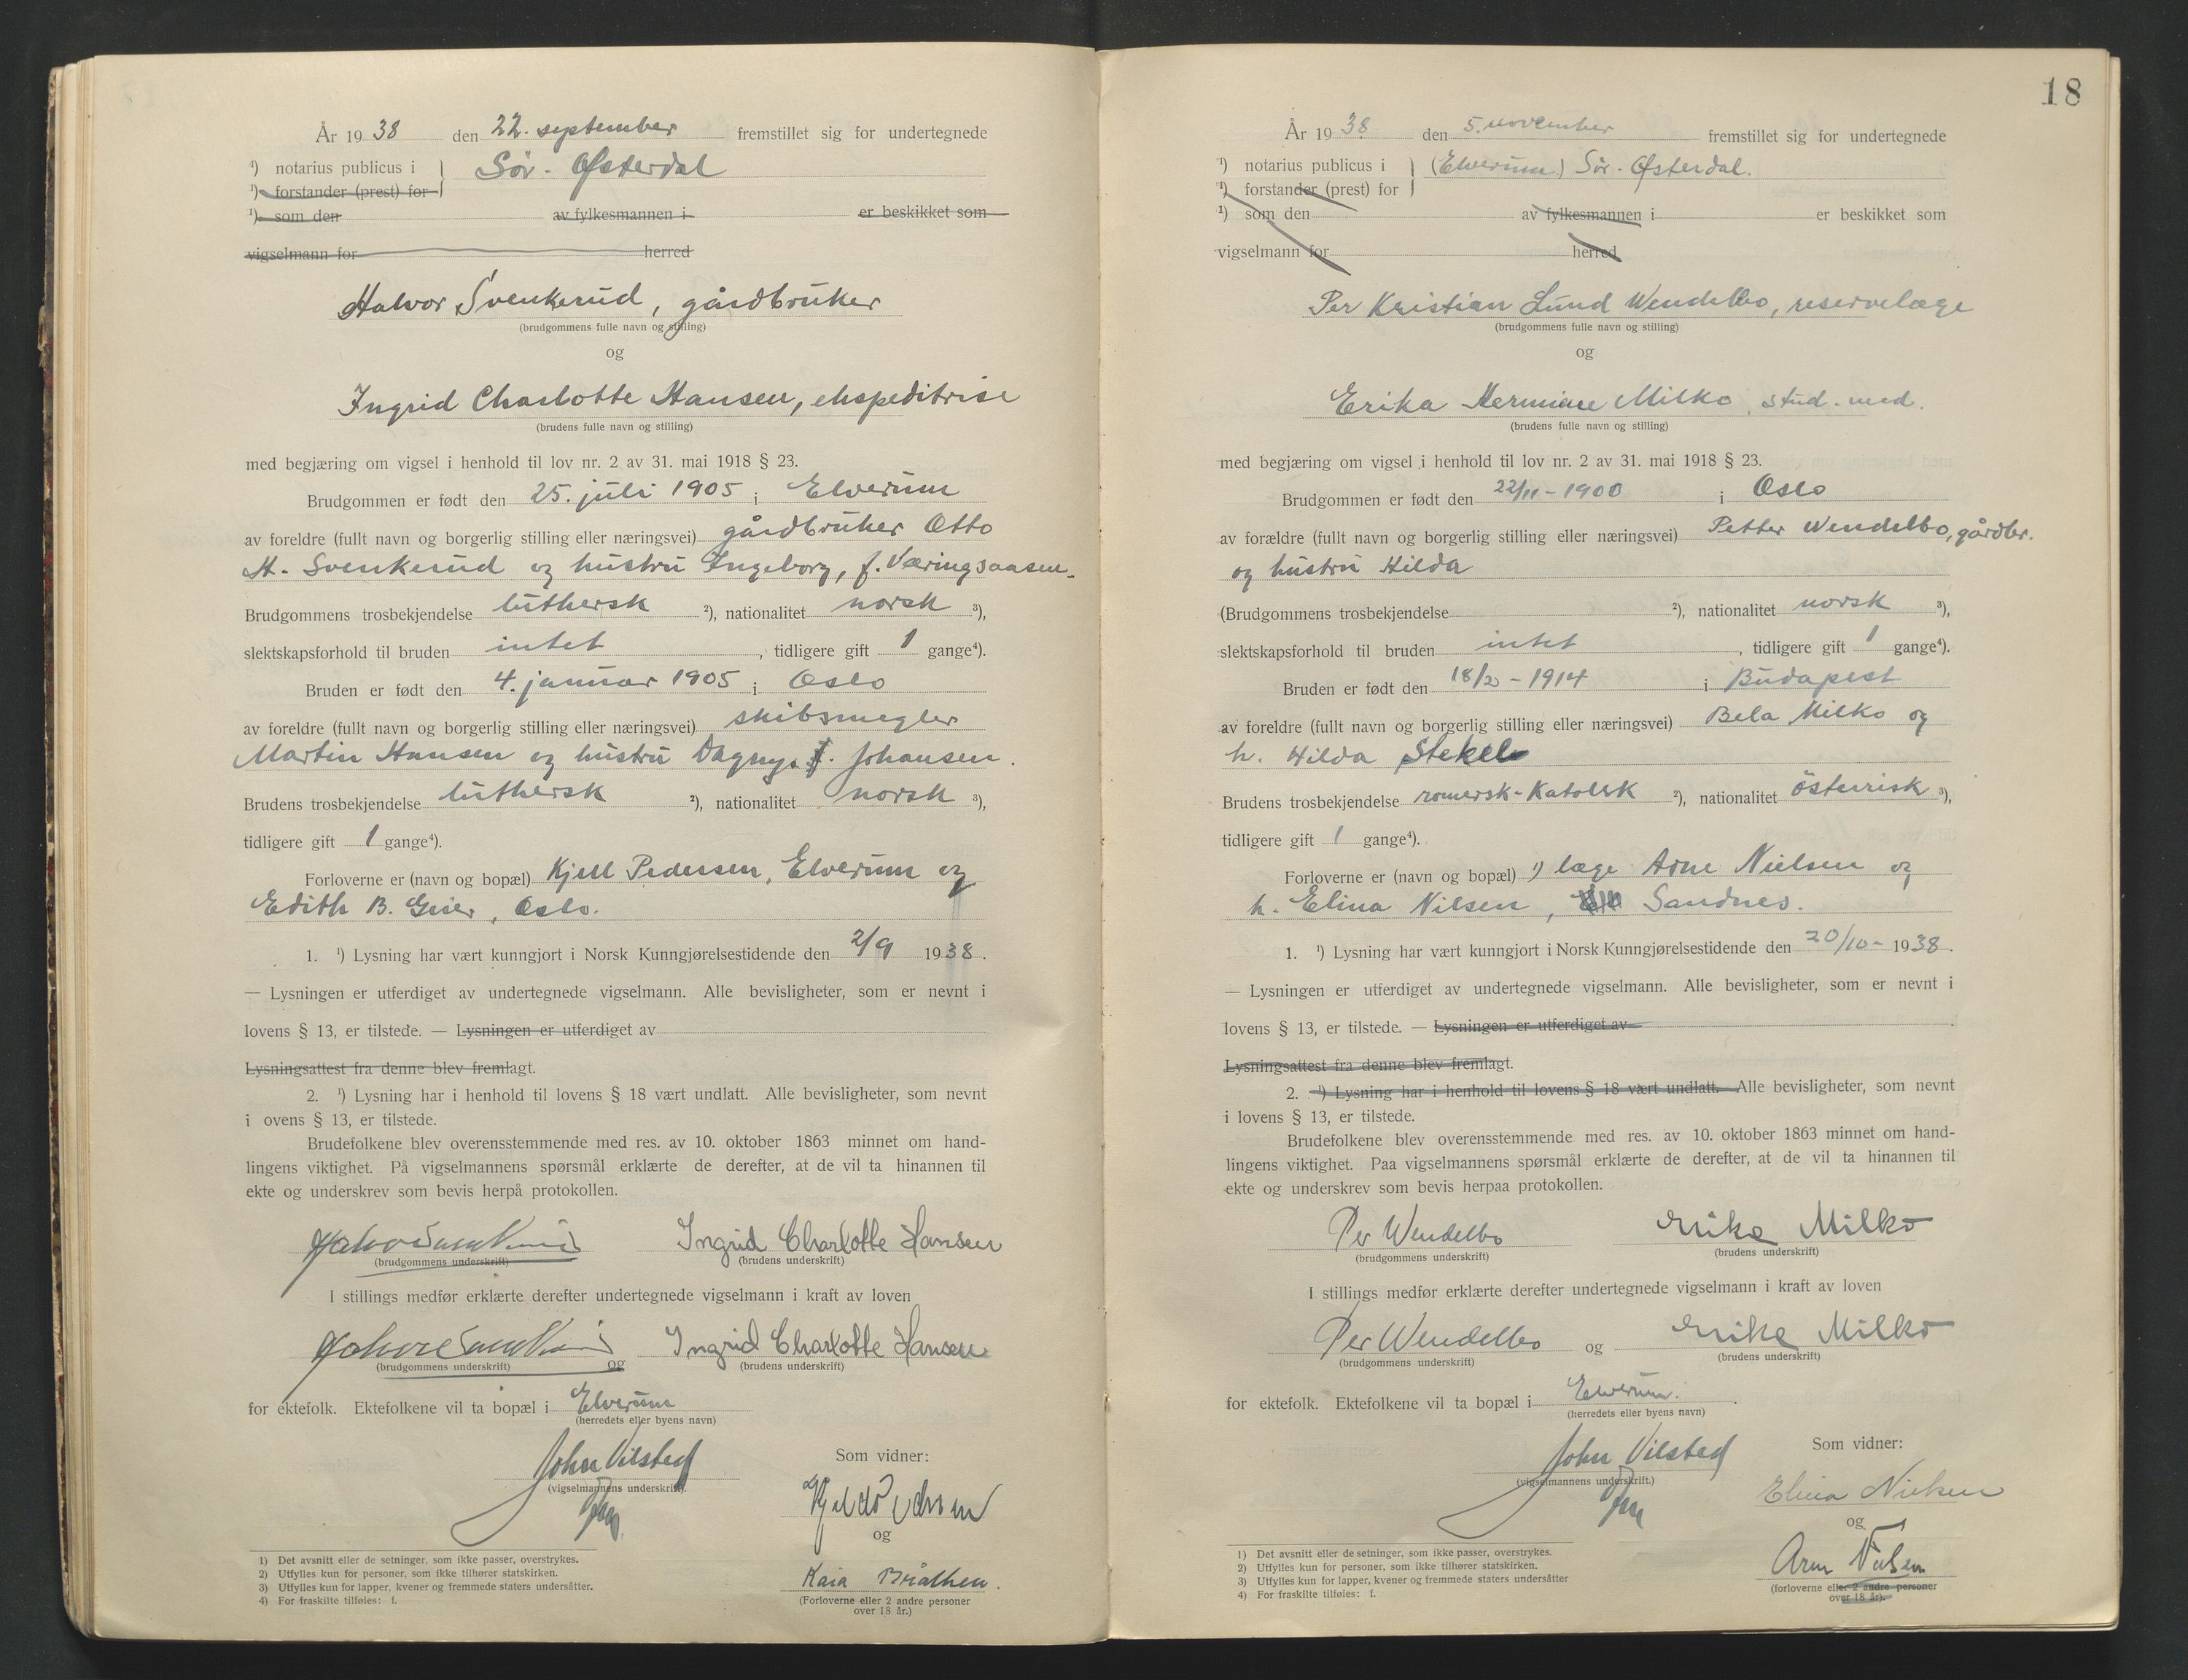 År 19 38 den 22. september fremstillet sig for undertegnede
¹) notarius publicus i } Sör-Østerdal
¹) forstander (prest) for
¹) som den av fylkesmannen i er beskikket som
vigselmann for herred
Halvor Svenkerud, gårdbruker
(brudgommens fulle navn og stilling)
og
Ingrid Charlotte Hansen, ekspeditrise
(brudens fulle navn og stilling)
med begjæring om vigsel i henhold til lov nr. 2 av 31. mai 1918 § 23.
Brudgommen er født den 25. juli 1905 i Elverum
av foreldre (fullt navn og borgerlig stilling eller næringsvei) gårdbruker Otto
H. Svenkerud og hustru Ingeborg, f. Væringsaasen.
Brudgommens trosbekjendelse luthersk ²), nationalitet norsk ³),
slektskapsforhold til bruden intet, tidligere gift 1 gange⁴).
Bruden er født den 4. januar 1905 i Oslo
av foreldre (fullt navn og borgerlig stilling eller næringsvei) skibsmegler
Martin Hansen og hustru Dagny, f. Johansen.
Brudens trosbekjendelse luthersk ²), nationalitet norsk ³),
tidligere gift 1 gange⁴).
Forloverne er (navn og bopæl) Kjell Pedersen, Elverum og
Edith B. , Oslo.
1. ¹) Lysning har vært kunngjort i Norsk Kunngjørelsestidende den 2/9 1938.
— Lysningen er utferdiget av undertegnede vigselmann. Alle bevisligheter, som er nevnt i
lovens § 13, er tilstede. — Lysningen er utferdiget av
Lysningsattest fra denne blev fremlagt.
2. ¹) Lysning har i henhold til lovens § 18 vært undlatt. Alle bevisligheter, som nevnt
i ovens § 13, er tilstede.
Brudefolkene blev overensstemmende med res. av 10. oktober 1863 minnet om hand-
lingens viktighet. På vigselmannens spørsmål erklærte de derefter, at de vil ta hinannen til
ekte og underskrev som bevis herpå protokollen.
Halvor Svenkerud Ingrid Charlotte Hansen
(brudgommens underskrift) (brudens underskrift)
I stillings medfør erklærte derefter undertegnede vigselmann i kraft av loven
Halvor Svenkerud og Ingrid Charlotte Hansen
(brudgommens underskrift) (brudens underskrift)
for ektefolk. Ektefolkene vil ta bopæl i Elverum
(herredets eller byens navn)
John Vilsted
(vigselmannens underskrift).
Som vidner:
Kjell Pedersen
og
Kaia Bråthen.
(Forloverne eller 2 andre personer
over 18 år.)
1) Det avsnitt eller de setninger, som ikke passer, overstrykes.
2) Utfylles kun for personer, som ikke tilhører statskirken.
3) Utfylles kun for lapper, kvener og fremmede staters undersåtter.
4) For fraskilte tilføies: f.
18
År 19 38 den 5. november fremstillet sig for undertegnede
¹) notarius publicus i } (Elverum) Sör-Østerdal.
¹) forstander (prest) for
¹) som den av fylkesmannen i er beskikket som
vigselmann for herred
Per Kristian Lund Wendelbo, reservelæge
(brudgommens fulle navn og stilling)
og
Erika Hermine Milko, stud. med.
(brudens fulle navn og stilling)
med begjæring om vigsel i henhold til lov nr. 2 av 31. mai 1918 § 23.
Brudgommen er født den 22/11-1900 i Oslo
av forældre (fullt navn og borgerlig stilling eller næringsvei) Petter Wendelbo, gårdbr.
og hustru Hilda
(Brudgommens trosbekjendelse ²), nationalitet norsk ³),
slektskapsforhold til bruden intet, tidligere gift 1 gange⁴).
Bruden er født den -1914 i Budapest
av foreldre (fullt navn og borgerlig stilling eller næringsvei) Bela Milko og
h. Hilda Stekel
Brudens trosbekjendelse romersk-Katolsk ²), nationalitet österrisk ³),
tidligere gift 1 gange⁴).
Forloverne er (navn og bopæl) ¹) læge Arne Nielsen og
h. Elina Nilsen, Sandnes.
1. ¹) Lysning har vært kunngjort i Norsk Kunngjørelsestidende den 20/10- 1938.
— Lysningen er utferdiget av undertegnede vigselmann. Alle bevisligheter, som er nevnt i
lovens § 13, er tilstede. — Lysningen er utferdiget av
Lysningsattest fra denne blev fremlagt.
2. ¹) Lysning har i henhold til lovens § 18 vært undlatt. Alle bevisligheter, som nevnt
i lovens § 13, er tilstede.
Brudefolkene blev overensstemmende med res. av 10. oktober 1863 minnet om hand-
lingens viktighet. Paa vigselmannens spørsmål erklærte de derefter, at de vil ta hinannen til
ekte og underskrev som bevis herpaa protokollen.
Per Wendelbo Erika Milko
(brudgommens underskrift) (brudens underskrift)
I stillings medfør erklærte derefter undertegnede vigselmann i kraft av loven
Per Wendelbo og Erika Milko
(brudgommens underskrift) (brudens underskrift)
for ektefolk. Ektefolkene vil ta bopæl i Elverum.
(herredets eller byens navn)
John Vilsted
(vigselmannens underskrift.)
Som vidner:
Elina Nielsen
og
Arne Nielsen
(forloverne eller 2 andre personer
over 18 år).
1) Det avsnitt eller de setninger, som ikke passer, overstrykes.
2) Utfylles kun for personer, som ikke tilhører statskirken.
3) Utfylles kun for lapper, kvener og fremmede staters undersåtter
4) For fraskilte tilføies: f.